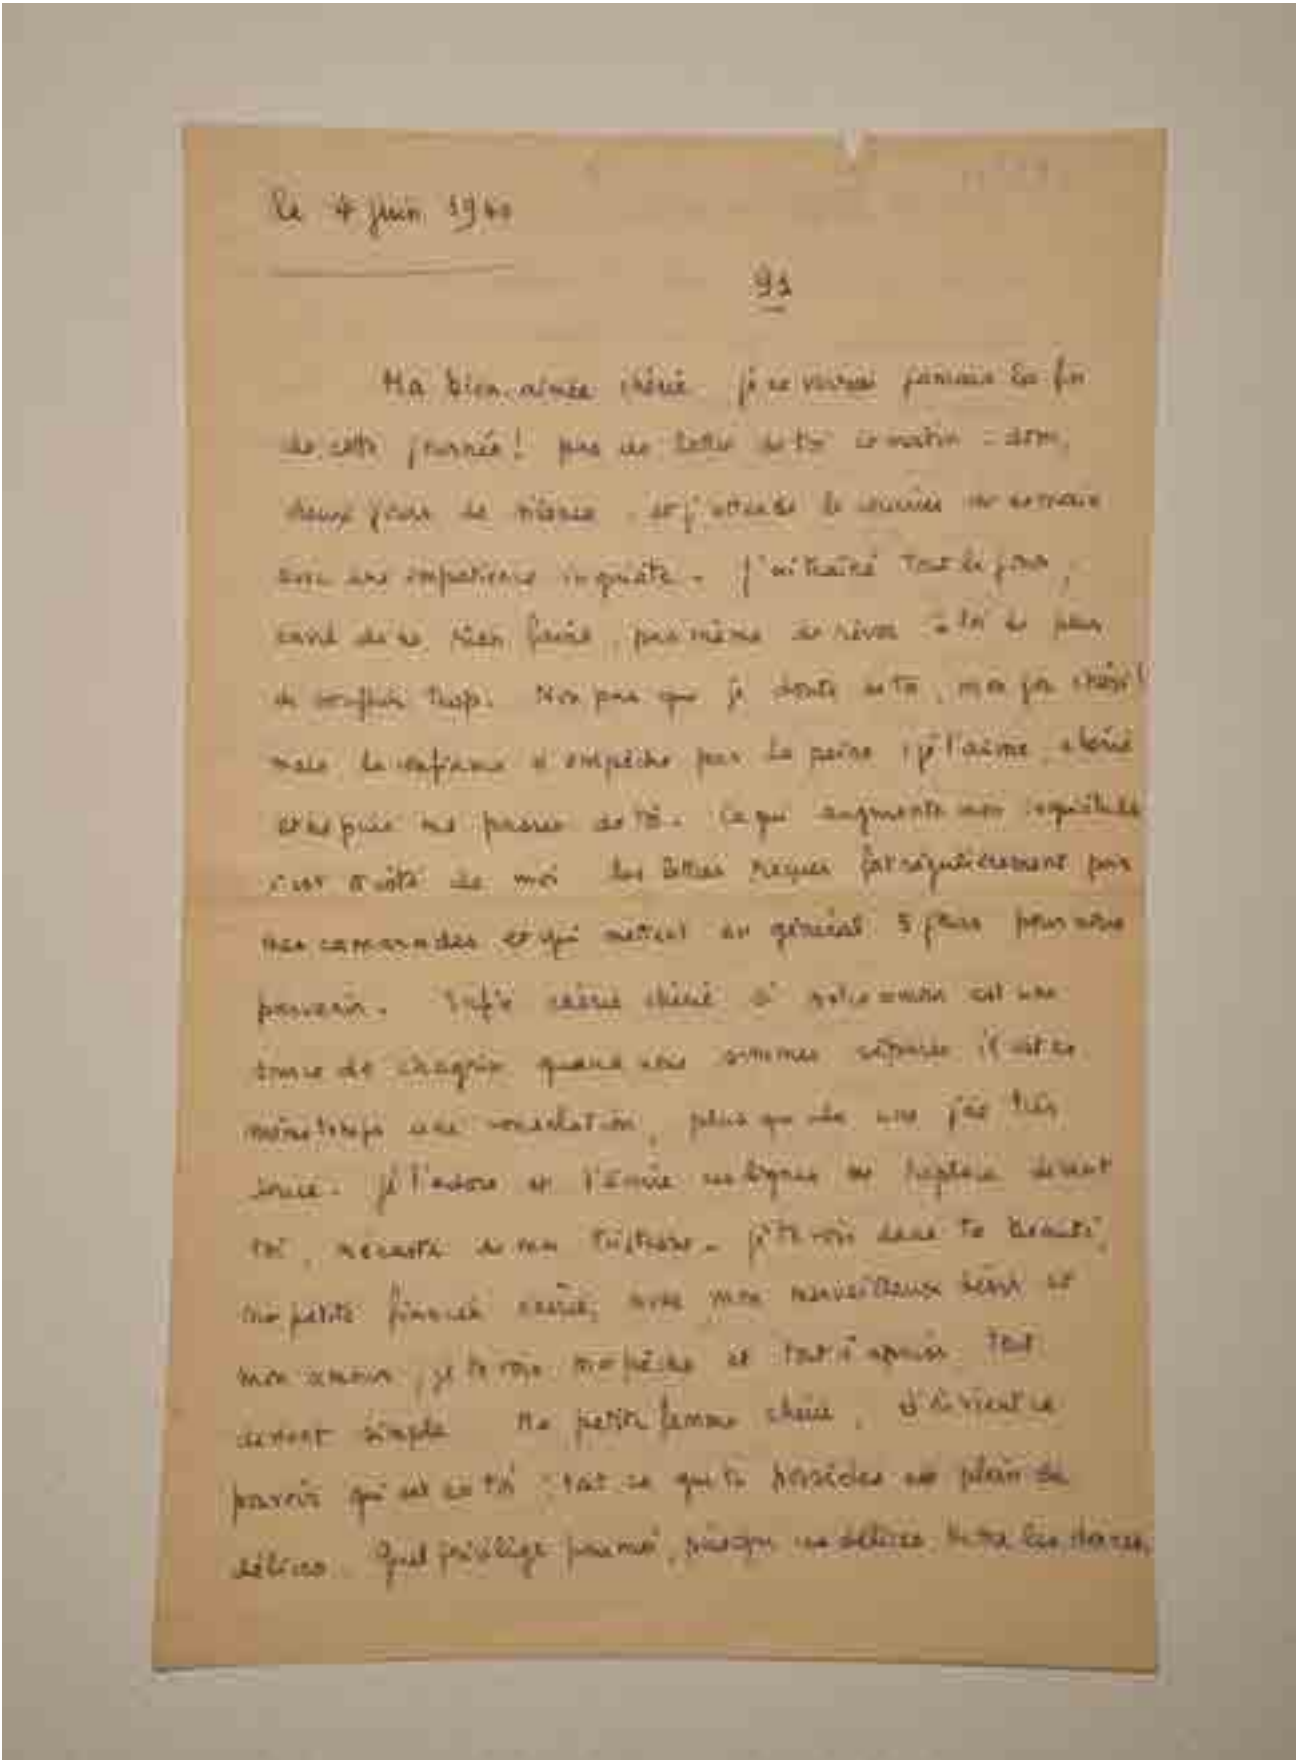 le 4 juin 1940
91
Ma bien-aimée chérie je ne verrai jamais la fin
de cette journée ! pas de lettre de toi ce matin : donc,
deux jours de silence, et j'attends le courrier de demain
avec une impatience inquiète. J'ai traîné tout le jour,
de ne rien faire, pas même de rêver à toi de peur
de souffrir trop. Non pas que je doute de toi, mon chéri !
mais la confiance n'empêche pas la peine : je t'aime, chérie
et ne puis me passer de toi. Ce qui augmente mon inquiétude
c'est à côté de moi les lettres reçues fort régulièrement par
mes camarades et qui mettent en général 5 jours pour nous
parvenir. Enfin chérie chérie si notre amour est une
source de chagrin quand nous sommes séparés il est en
même temps une consolation, plus que cela une joie très
douce. Je t'adore et t'écrire ces lignes me replace devant
toi, me de ma tristesse. Je te vois dans ta beauté,
ma petite fiancée chérie, avec mon merveilleux désir et
mon amour, je te vois et tout s'apaise, tout
devient simple. Ma petite femme chérie, d'où vient ce
pouvoir qui est en toi : tout ce que tu possèdes est plein de
délices. Quel privilège pour moi, puisque ces délices tu me les donnes,